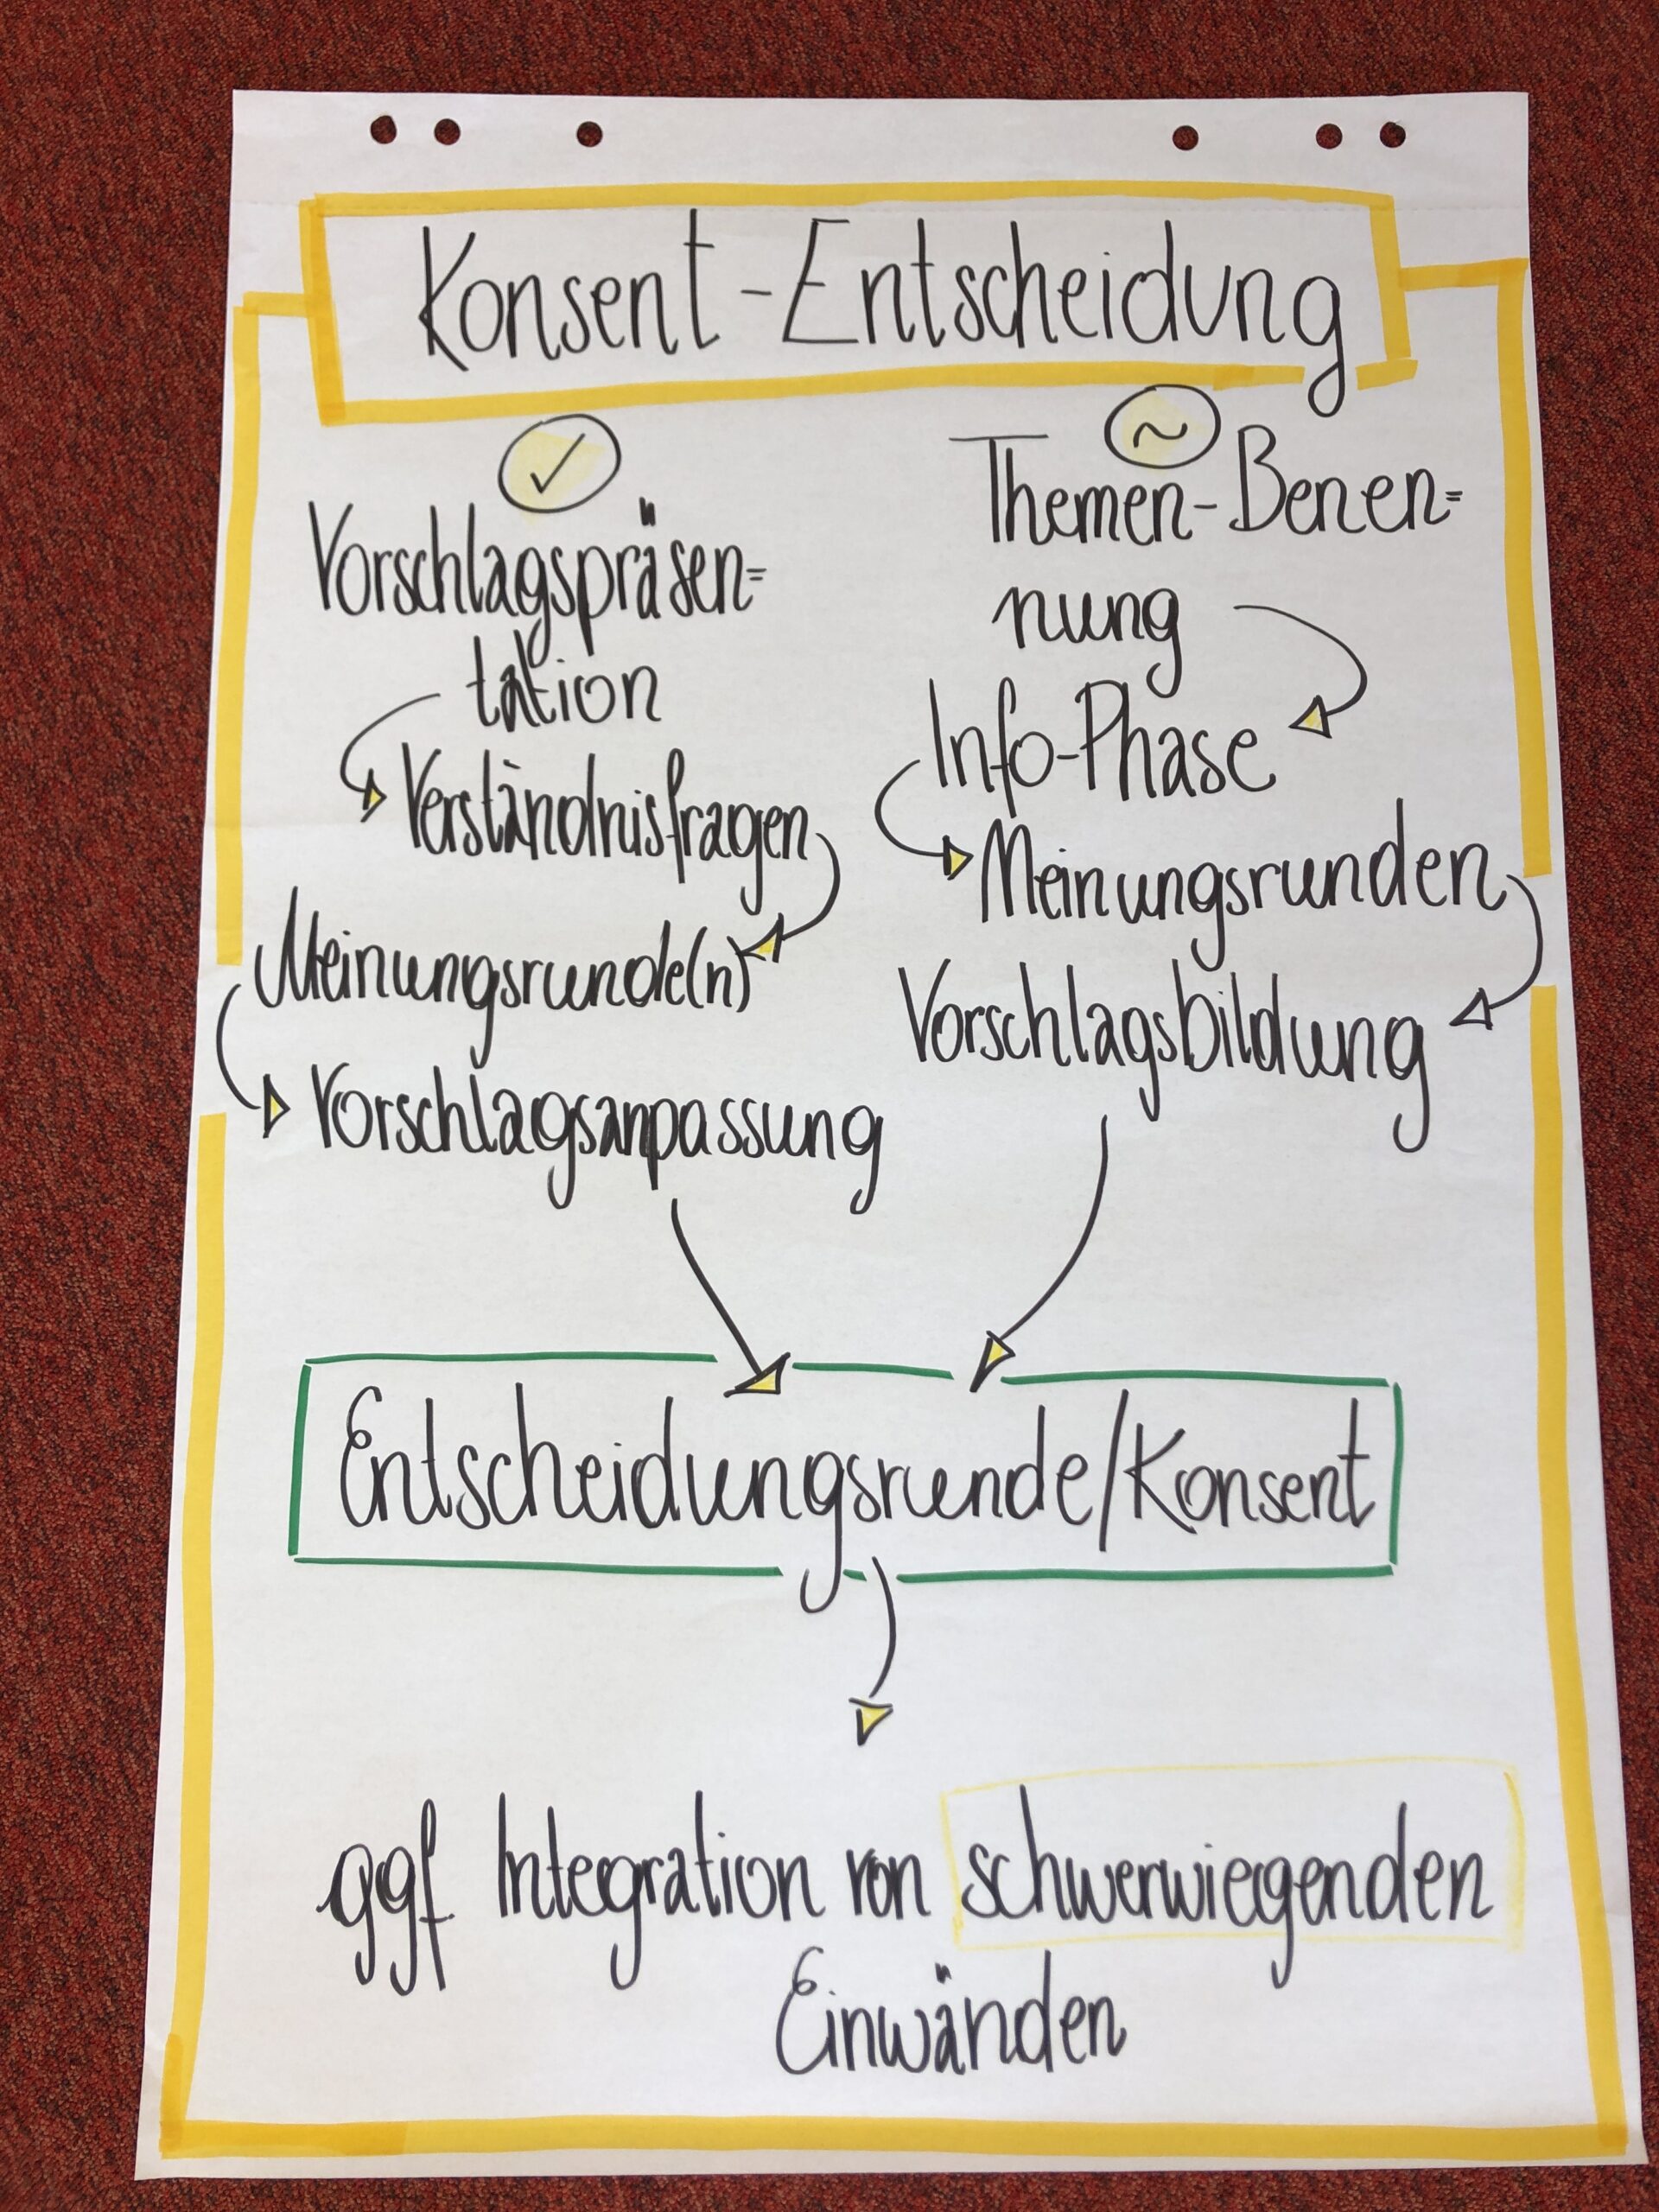 Konsent-Entscheidung
✓
Vorschlagspräsen=
tation
Verständnisfragen
Meinungsrunde(n)
Vorschlagsanpassung
~
Themen-Benen=
nung
Info-Phase
Meinungsrunden
Vorschlagsbildung
Entscheidungsrunde/Konsent
ggf Integration von schwerwiegenden
Einwänden